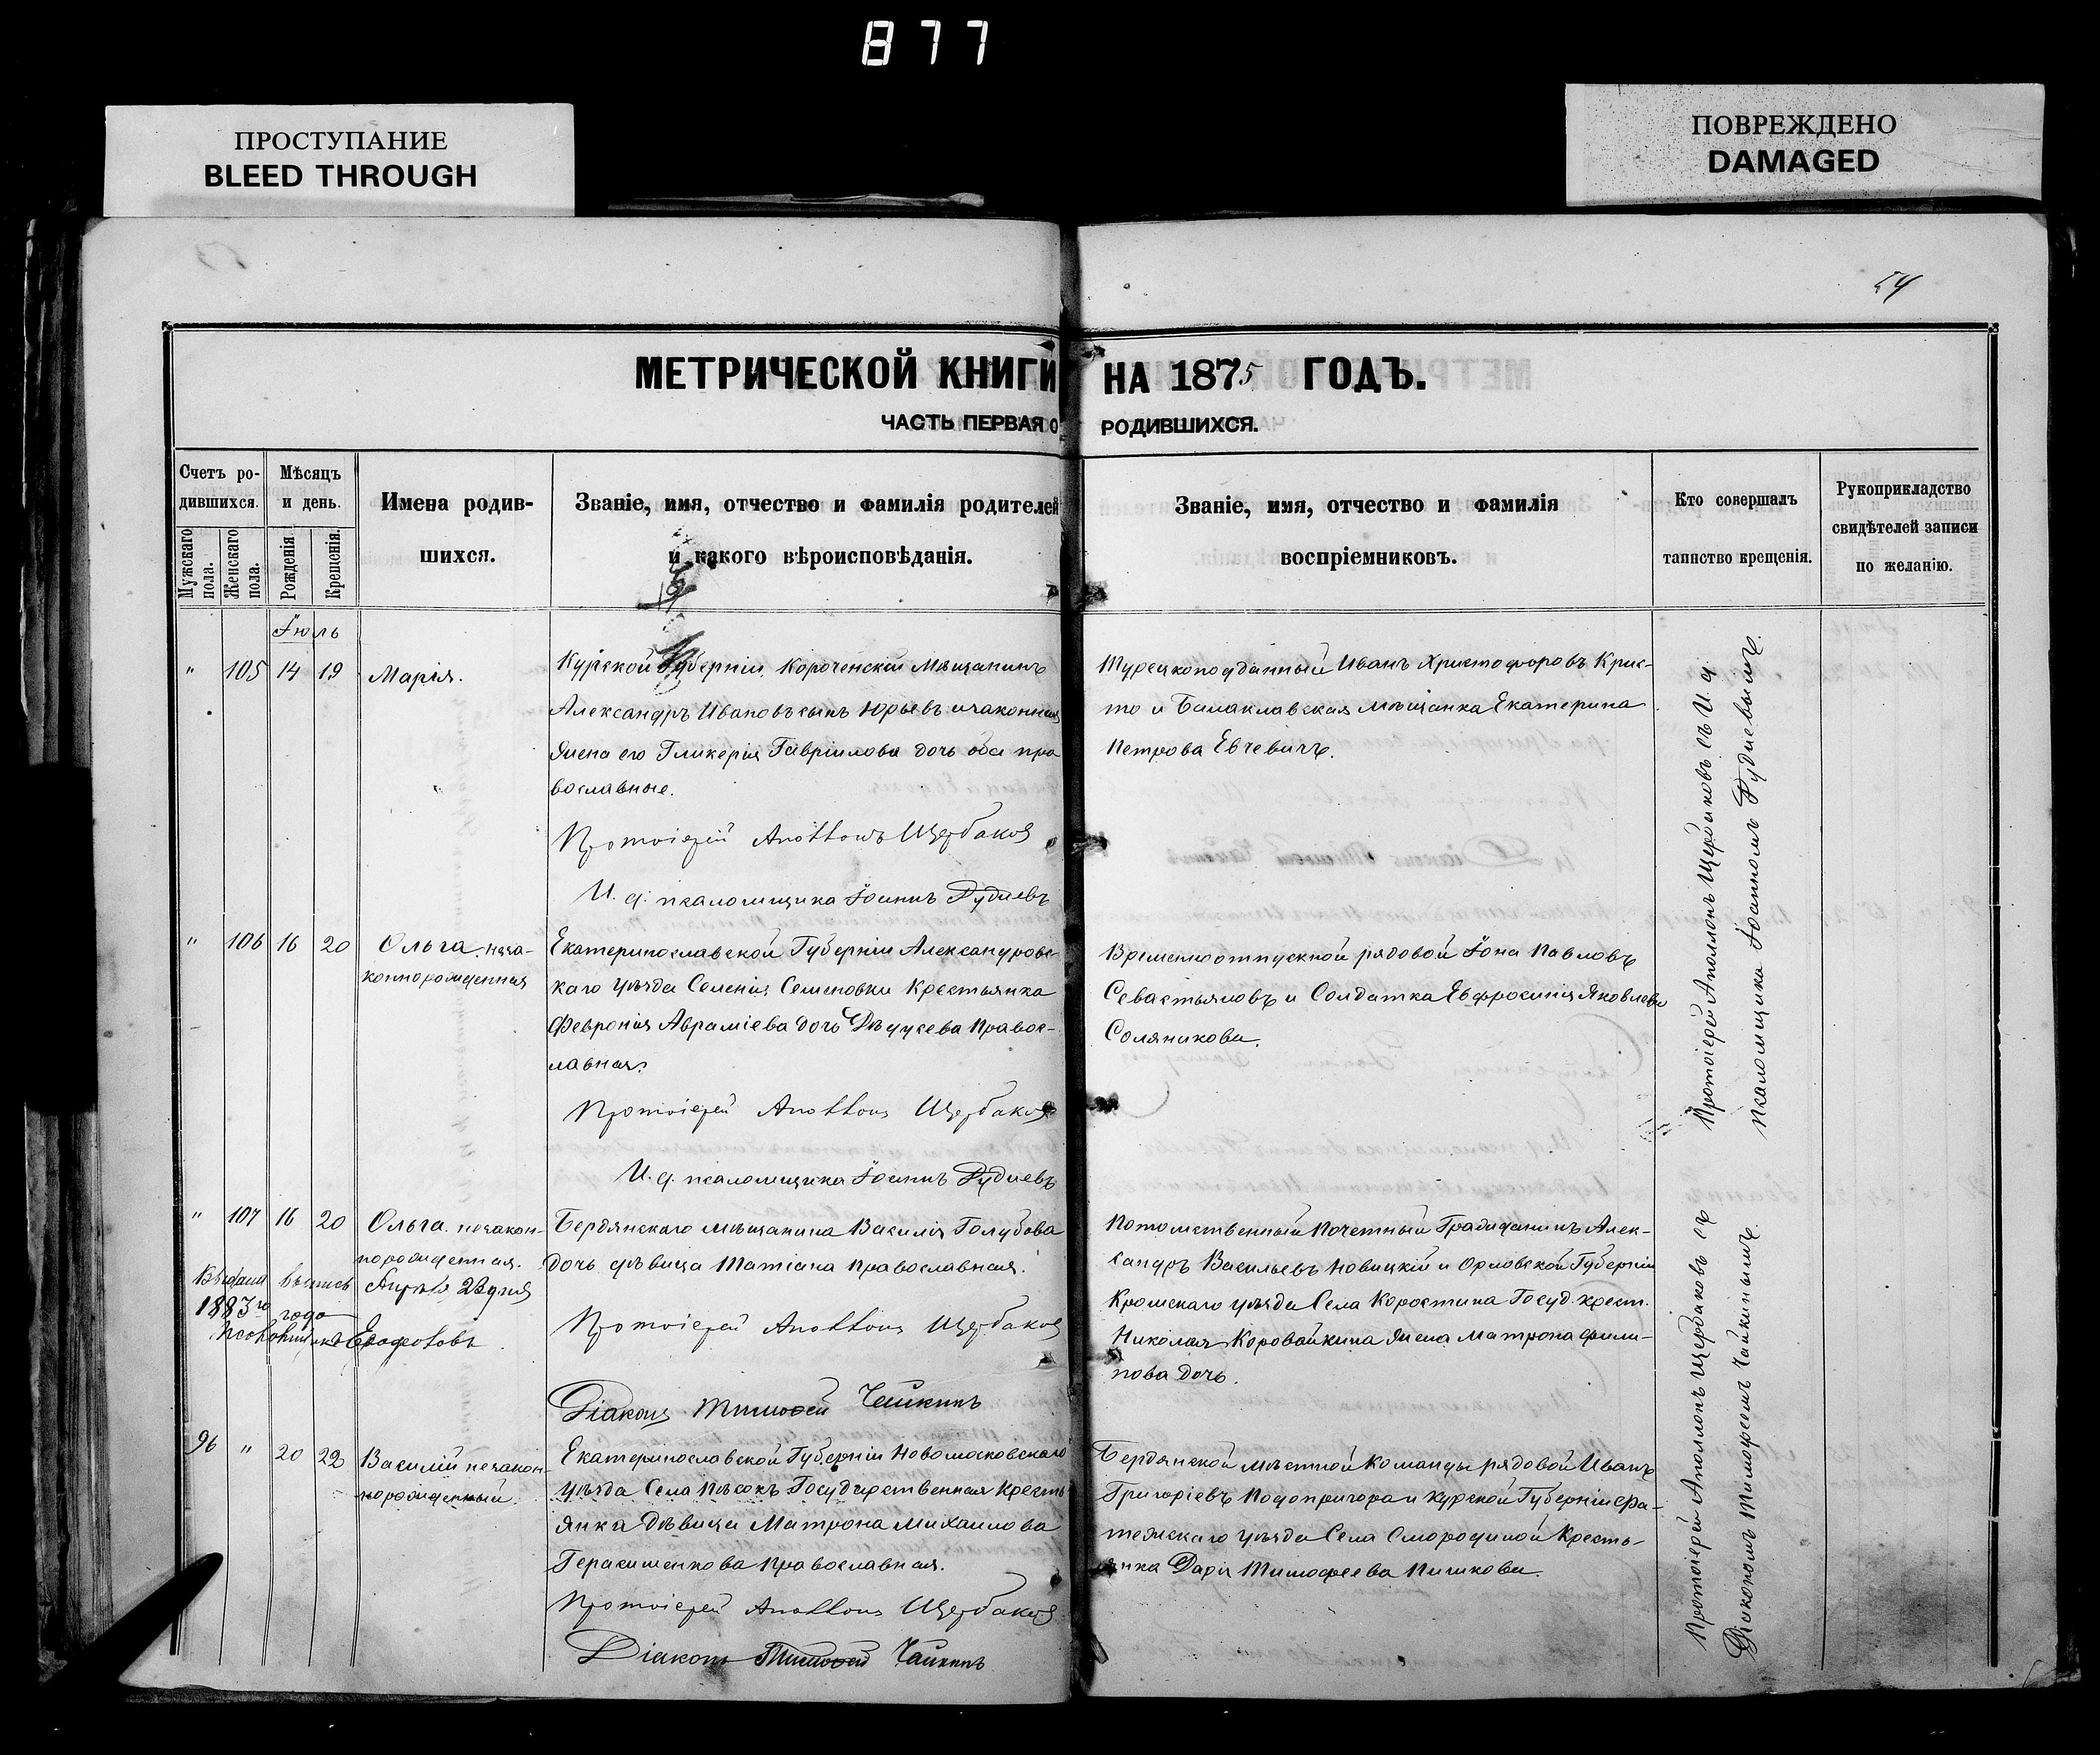 877
ПРОСТУПАНИЕ
BLEED THROUGH
ПОВРЕЖДЕНО
DAMAGED
54
МЕТРИЧЕСКОЙ КНИГИ НА 1875 ГОДЪ.
ЧАСТЬ ПЕРВАЯ О РОДИВШИХСЯ.
Счетъ ро-
дившихся.
Мужскаго пола.
Женскаго пола.
Мѣсяцъ
и день.
Рожденія.
Крещенія.
Имена родив-
шихся.
Званіе, имя, отчество и фамилія родителей
и какого вѣроисповѣданія.
Званіе, имя, отчество и фамилія
воспріемниковъ.
Кто совершалъ
таинство крещенія.
Рукоприкладство
свидѣтелей записи
по желанію.
Іюль
" 105 14 19 Марія.
Курской Губерніи, Короченскій Мѣщанинъ
Александръ Ивановъ сынъ Юрьевъ и законная
жена его Гликерія Гавріилова дочь оба пра
вославные.
Протоіерей Аполлонъ Щербаковъ
И. д. псаломщика Іоаннъ Дудиевъ
Турецкоподданный Иванъ Христофоровъ Крис-
то и Балаклавская мѣщанка Екатерина
Петрова Евчевичъ.
Протоіерей Аполлонъ Щербаковъ съ И. д.
псаломщика Іоанномъ Дудиевымъ.
" 106 16 20 Ольга неза-
коннорожденная
Екатеринославской Губерніи Александровс-
каго уѣзда Селенія Семеновки Крестьянка
Февронія Авраміева дочь Правос-
лавная.
Протоіерей Аполлонъ Щербаковъ
И. д. псаломщика Іоаннъ Дудиевъ
Временноотпускной рядовой Іона Павловъ
Севастьяновъ и Солдатка Евфросинія Яковлева
Соляникова.
" 107 16 20 Ольга незакон-
норожденная.
Выдана выпись Апрѣля 28 дня
1883 го года
Бердянскаго мѣщанина Василія Голубова
дочь дѣвица Татіана православная.
Протоіерей Аполлонъ Щербаковъ
Діаконъ Тимофей Чайкинъ
Потомственный Почетный Гражданинъ Алек-
сандръ Васильевъ Новицкій и Орловской Губерніи
Кромскаго уѣзда Села Коростина Госуд. крест.
Николая Коровайкина жена Матрона Фили-
пова дочь.
Протоіерей Аполлонъ Щербаковъ съ
Діакономъ Тимофеемъ Чайкинымъ.
96 " 20 22 Василій незакон-
норожденный.
Екатеринославской Губерніи Новомосковскаго
уѣзда Села Пѣсокъ Государственная Кресть
янка Дѣвица Матрона Михаилова
Герасименкова Православная.
Протоіерей Аполлонъ Щербаковъ
Діаконъ Тимофей Чайкинъ
Бердянской мѣстной Команды рядовой Иванъ
Григоріевъ Подопригора и Курской Губерніи Фа-
тежскаго уѣзда Села Смородиной Кресть-
янка Дарія Тимофеева Пичкова.